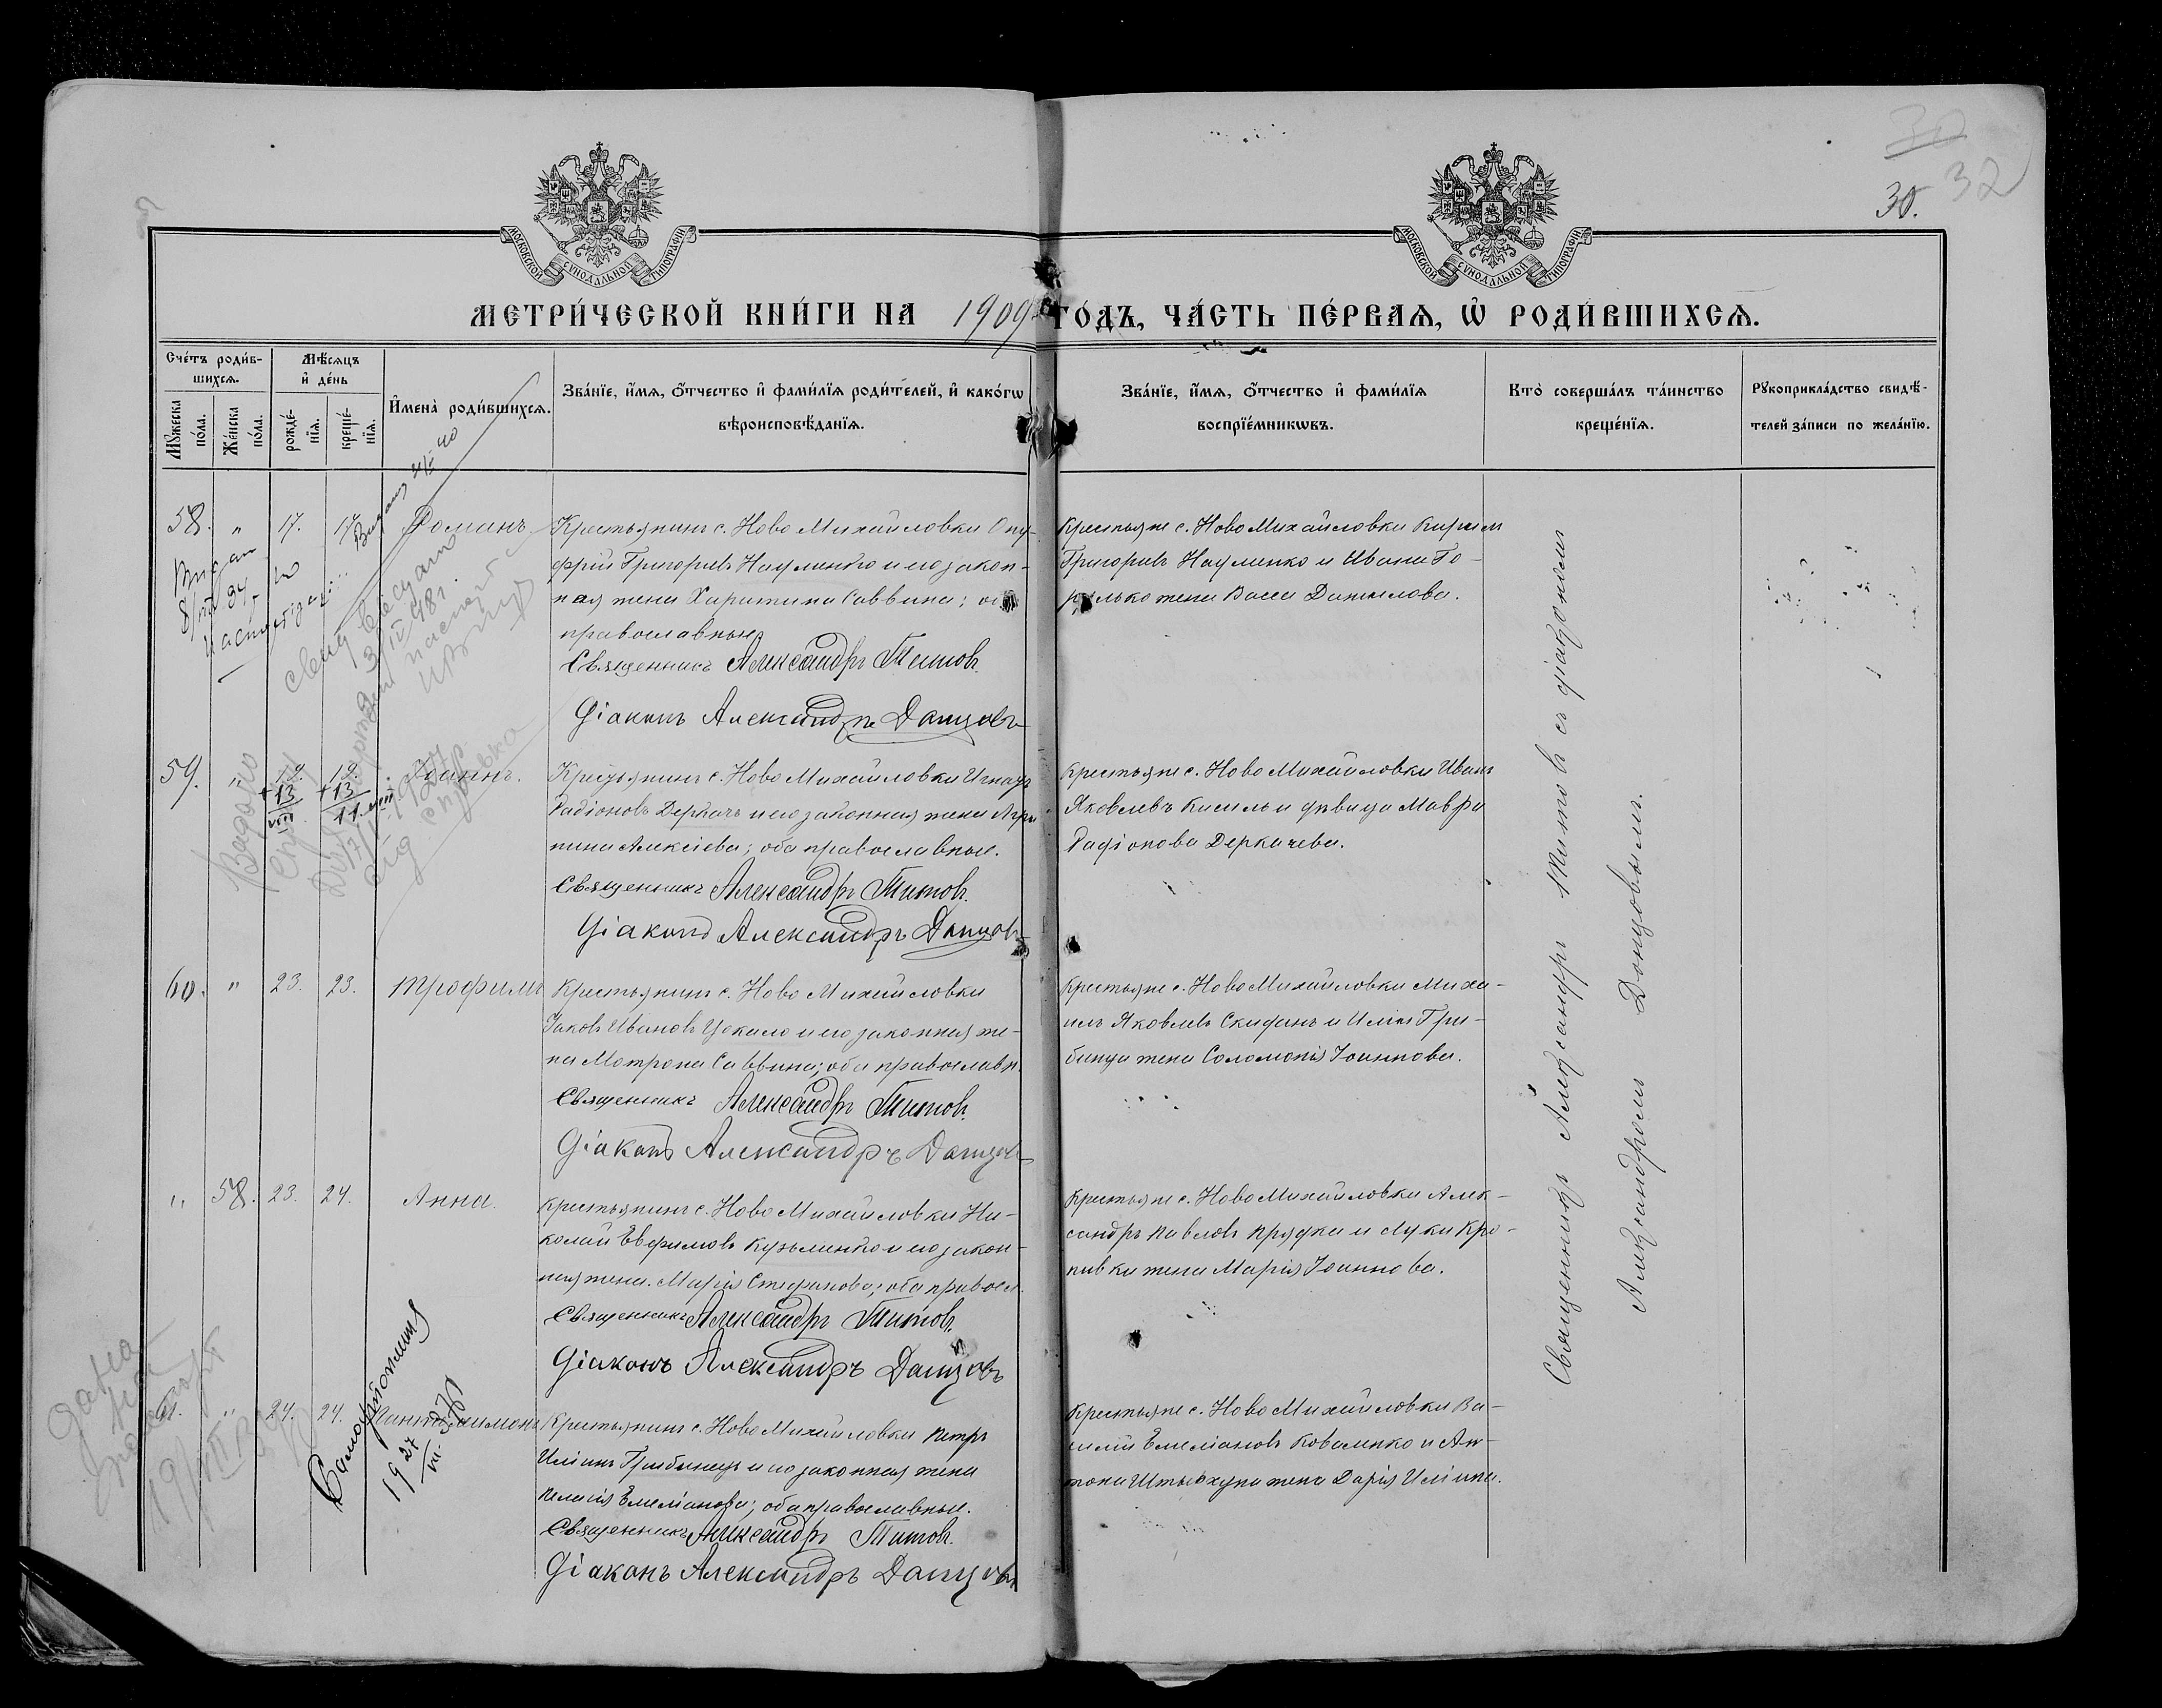 30
32
30.
МОСКОВСКОЙ СѴНОДАЛЬНОЙ ТИПОГРАФІИ
МОСКОВСКОЙ СѴНОДАЛЬНОЙ ТИПОГРАФІИ
МЕТРИ́ЧЕСКОЙ КНИ́ГИ НА 1909 ГОДЪ, ЧА́СТЬ ПЕ́РВАѦ, Ѡ РОДИ́ВШИХСѦ.
Сче́тъ роди́в-
шихсѧ.
Мꙋ́жеска
по́ла.
Же́нска
по́ла.
Мѣ́сѧцъ
и де́нь
рожде́-
нїѧ.
креще́-
нїѧ.
Имена̀ роди́вшихсѧ.
Зва́нїе, и́мѧ, ѻ́тчество и фами́лїѧ роди́телей, и како́гѡ
вѣроисповѣ́данїѧ.
Зва́нїе, и́мѧ, ѻ́тчество и фами́лїѧ
воспрїе́мникѡвъ.
Кто̀ соверша́лъ та́инство
креще́нїѧ.
Рꙋкоприкла́дство свидѣ́-
телей за́писи по жела́нїю.
58. " 17. 17. Романъ
Крестьянинъ с. Ново Михайловки Ону-
фрій Григорьевъ Науменко и его закон-
ная жена Харитина Саввина; оба
православные
Священникъ Александръ Титовъ.
Діаконъ Александръ Донцовъ
Крестьяне с. Ново Михайловки Кирилл
Григорьевъ Науменко и Ивана Го-
рулько жена Васса Данилова.
59. " 19. 19. Іоаннъ.
+13 +13
VIII 11.VIII
Крестьянинъ с. Ново Михайловки Игнатъ
Радіоновъ Деркачъ и его законная жена Агри
пина Алексіева; оба православные.
Священникъ Александръ Титовъ.
Діаконъ Александръ Донцовъ
Крестьяне с. Ново Михайловки Иванъ
Яковлевъ Кисиль и дѣвица Мавра
Радіонова Деркачева.
60. " 23. 23. Трофимъ
Крестьянинъ с. Ново Михайловки
Іаковъ Ивановъ Цокало и его законная же-
на Матрона Саввина; оба православн.
Священникъ Александръ Титовъ.
Діаконъ Александръ Донцовъ
Крестьяне с. Ново Михайловки Миха-
илъ Яковлевъ Скиданъ и Иліи Гри-
бинца жена Соломонія Іоаннова.
" 58. 23. 24. Анна.
Крестьянинъ с. Ново Михайловки Ни-
колай Евфимовъ Кузьменко и его закон-
ная жена Марія Стефанова; оба правосл.
Священникъ Александръ Титовъ.
Діаконъ Александръ Донцовъ
Крестьяне с. Ново Михайловки Алек-
сандръ Павловъ Прядка и Луки Кро-
пивки жена Марія Іоаннова.
61. " 24. 24. Пантелеимонъ
Крестьянинъ с. Ново Михайловки Петръ
Иліинъ Грибинецъ и его законная жена
Пелагія Емеліанова; оба православные.
Священникъ Александръ Титовъ.
Діаконъ Александръ Донцовъ
Крестьяне с. Ново Михайловки Ва-
силій Емеліановъ Коваленко и Ан-
тона Штывхуна жена Дарія Иліина.
Священникъ Александръ Титовъ съ діакономъ
Александромъ Донцовымъ.